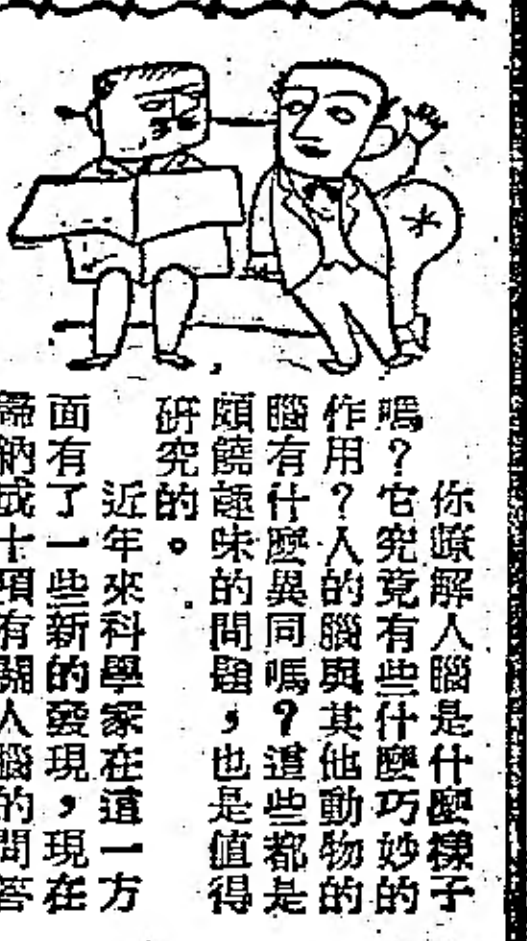 你瞭解人腦是什麼樣子
嗎？它究竟有些什麼巧妙的
作用？人的腦與其他動物的
腦有什麼異同嗎？這些都是
頗饒趣味的問題，也是值得
研究的。
近年來科學家在這一方
面有了一些新的發現，現在
歸納成十項有關人腦的問答